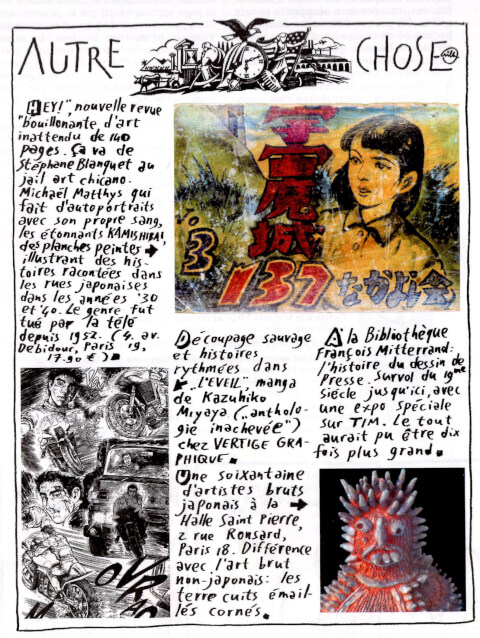 AUTRE CHOSE
"HEY!", nouvelle revue
"bouillonante d'art
inattendu de 140
pages. Ça va de
Stéphane Blanquet au
jail art chicano.
Michaël Matthys qui
fait d'autoportraits
avec son propre sang,
les étonnants KAMISHIBAI,
des planches peintes
illustrant des his-
toires racontées dans
les rues japonaises
dans les années '30
et '40. Le genre fut
tué par la télé
depuis 1952. (4. av.
Debidour, Paris 19,
17.90 €)
魔城
No 3
137 なかよし会
Découpage sauvage
et histoires
rythmées dans
"L'EVEIL" manga
de Kazuhiko
Miyaya ("antholo-
gie inachevée")
chez VERTIGE GRA-
PHIQUE.
Une soixantaine
d'artistes bruts
japonais à la
Halle Saint Pierre,
2 rue Ronsard,
Paris 18. Différence
avec l'art brut
non-japonais: les
terre cuits émail-
lés cornés.
A la Bibliothèque
François Mitterrand:
l'histoire du dessin de
Presse. Survol du 19me
Siècle jusqu'ici, avec
une expo spéciale
sur TIM. Le tout
aurait pu être dix
fois plus grand.